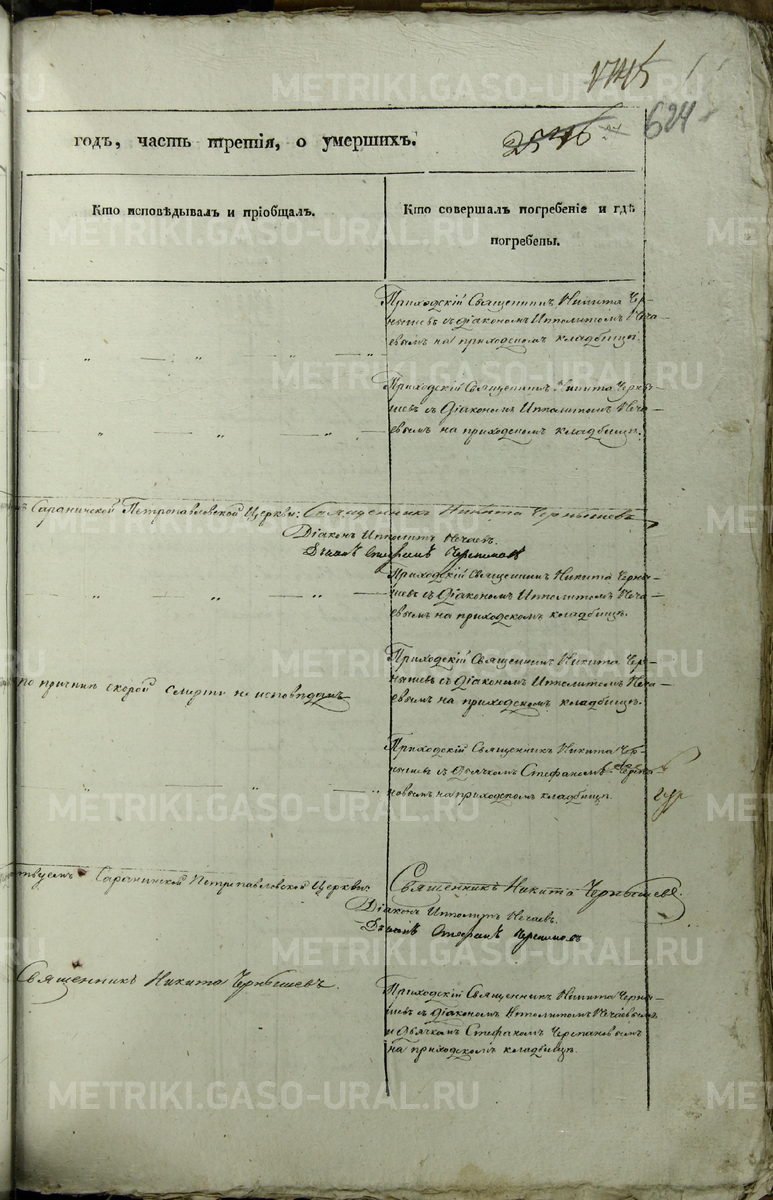 624
годъ, часть третія, о умершихъ.
Кто исповѣдывалъ и пріобщалъ.
Кто совершалъ погребеніе и гдѣ
погребены.
Приходскій Священникъ Никита Чер-
нышевъ съ Діакономъ Ипполитомъ Неча-
евымъ на приходскомъ кладбищѣ.
Приходскій Священникъ Никита Черны-
шевъ съ Діакономъ Ипполитомъ Неча-
евымъ на приходскомъ кладбищѣ.
Саранинской Петропавловской Церкви: Священникъ Никита Чернышевъ
Діаконъ Ипполитъ Нечаевъ.
Дьячекъ Стефанъ Черепановъ
Приходскій Священникъ Никита Черны-
шевъ съ Діакономъ Ипполитомъ Неча-
евымъ на приходскомъ кладбищѣ.
по причинѣ скорой смерти не исповѣданъ
Приходскій Священникъ Никита Чер-
нышевъ съ Діакономъ Ипполитомъ Неча-
евымъ на приходскомъ кладбищѣ.
Приходскій Священникъ Никита Чер-
нышевъ съ Дьячкомъ Стефаномъ Черепа-
новымъ на приходскомъ кладбищѣ.
Саранинской Петропавловской Церкви:
Священникъ Никита Чернышевъ.
Діаконъ Ипполитъ Нечаевъ.
Дьячекъ Стефанъ Черепановъ
Священникъ Никита Чернышевъ.
Приходскій Священникъ Никита Черны-
шевъ съ Діакономъ Ипполитомъ Нечаевымъ
и Дьячкомъ Стефаномъ Черепановымъ
на приходскомъ кладбищѣ.
METRIKI.GASO-URAL.RU